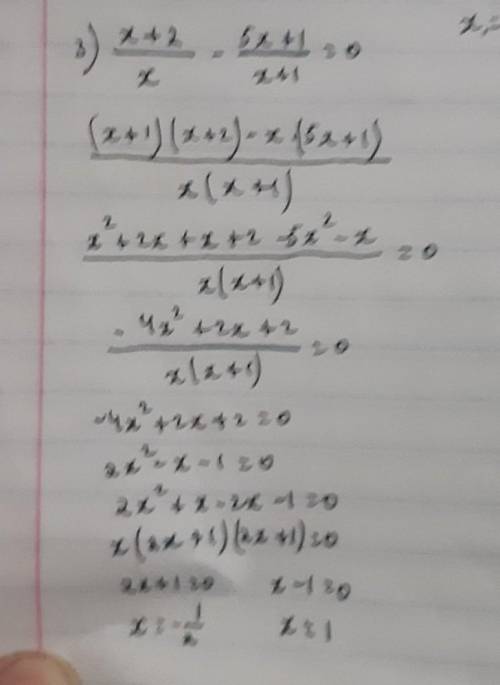 x,=
3) (x+2)/x - (5x+1)/(x+1) = 0
((x+1)(x+2) - x(5x+1))/(x(x+1))
(x²+2x+x+2-5x²-x)/(x(x+1)) = 0
(-4x²+2x+2)/(x(x+1)) = 0
-4x²+2x+2=0
2x²-x-1=0
2x²+x-2x-1=0
x(2x+1)(2x+1)=0
2x+1=0 x-1=0
x=-1/2 x=1